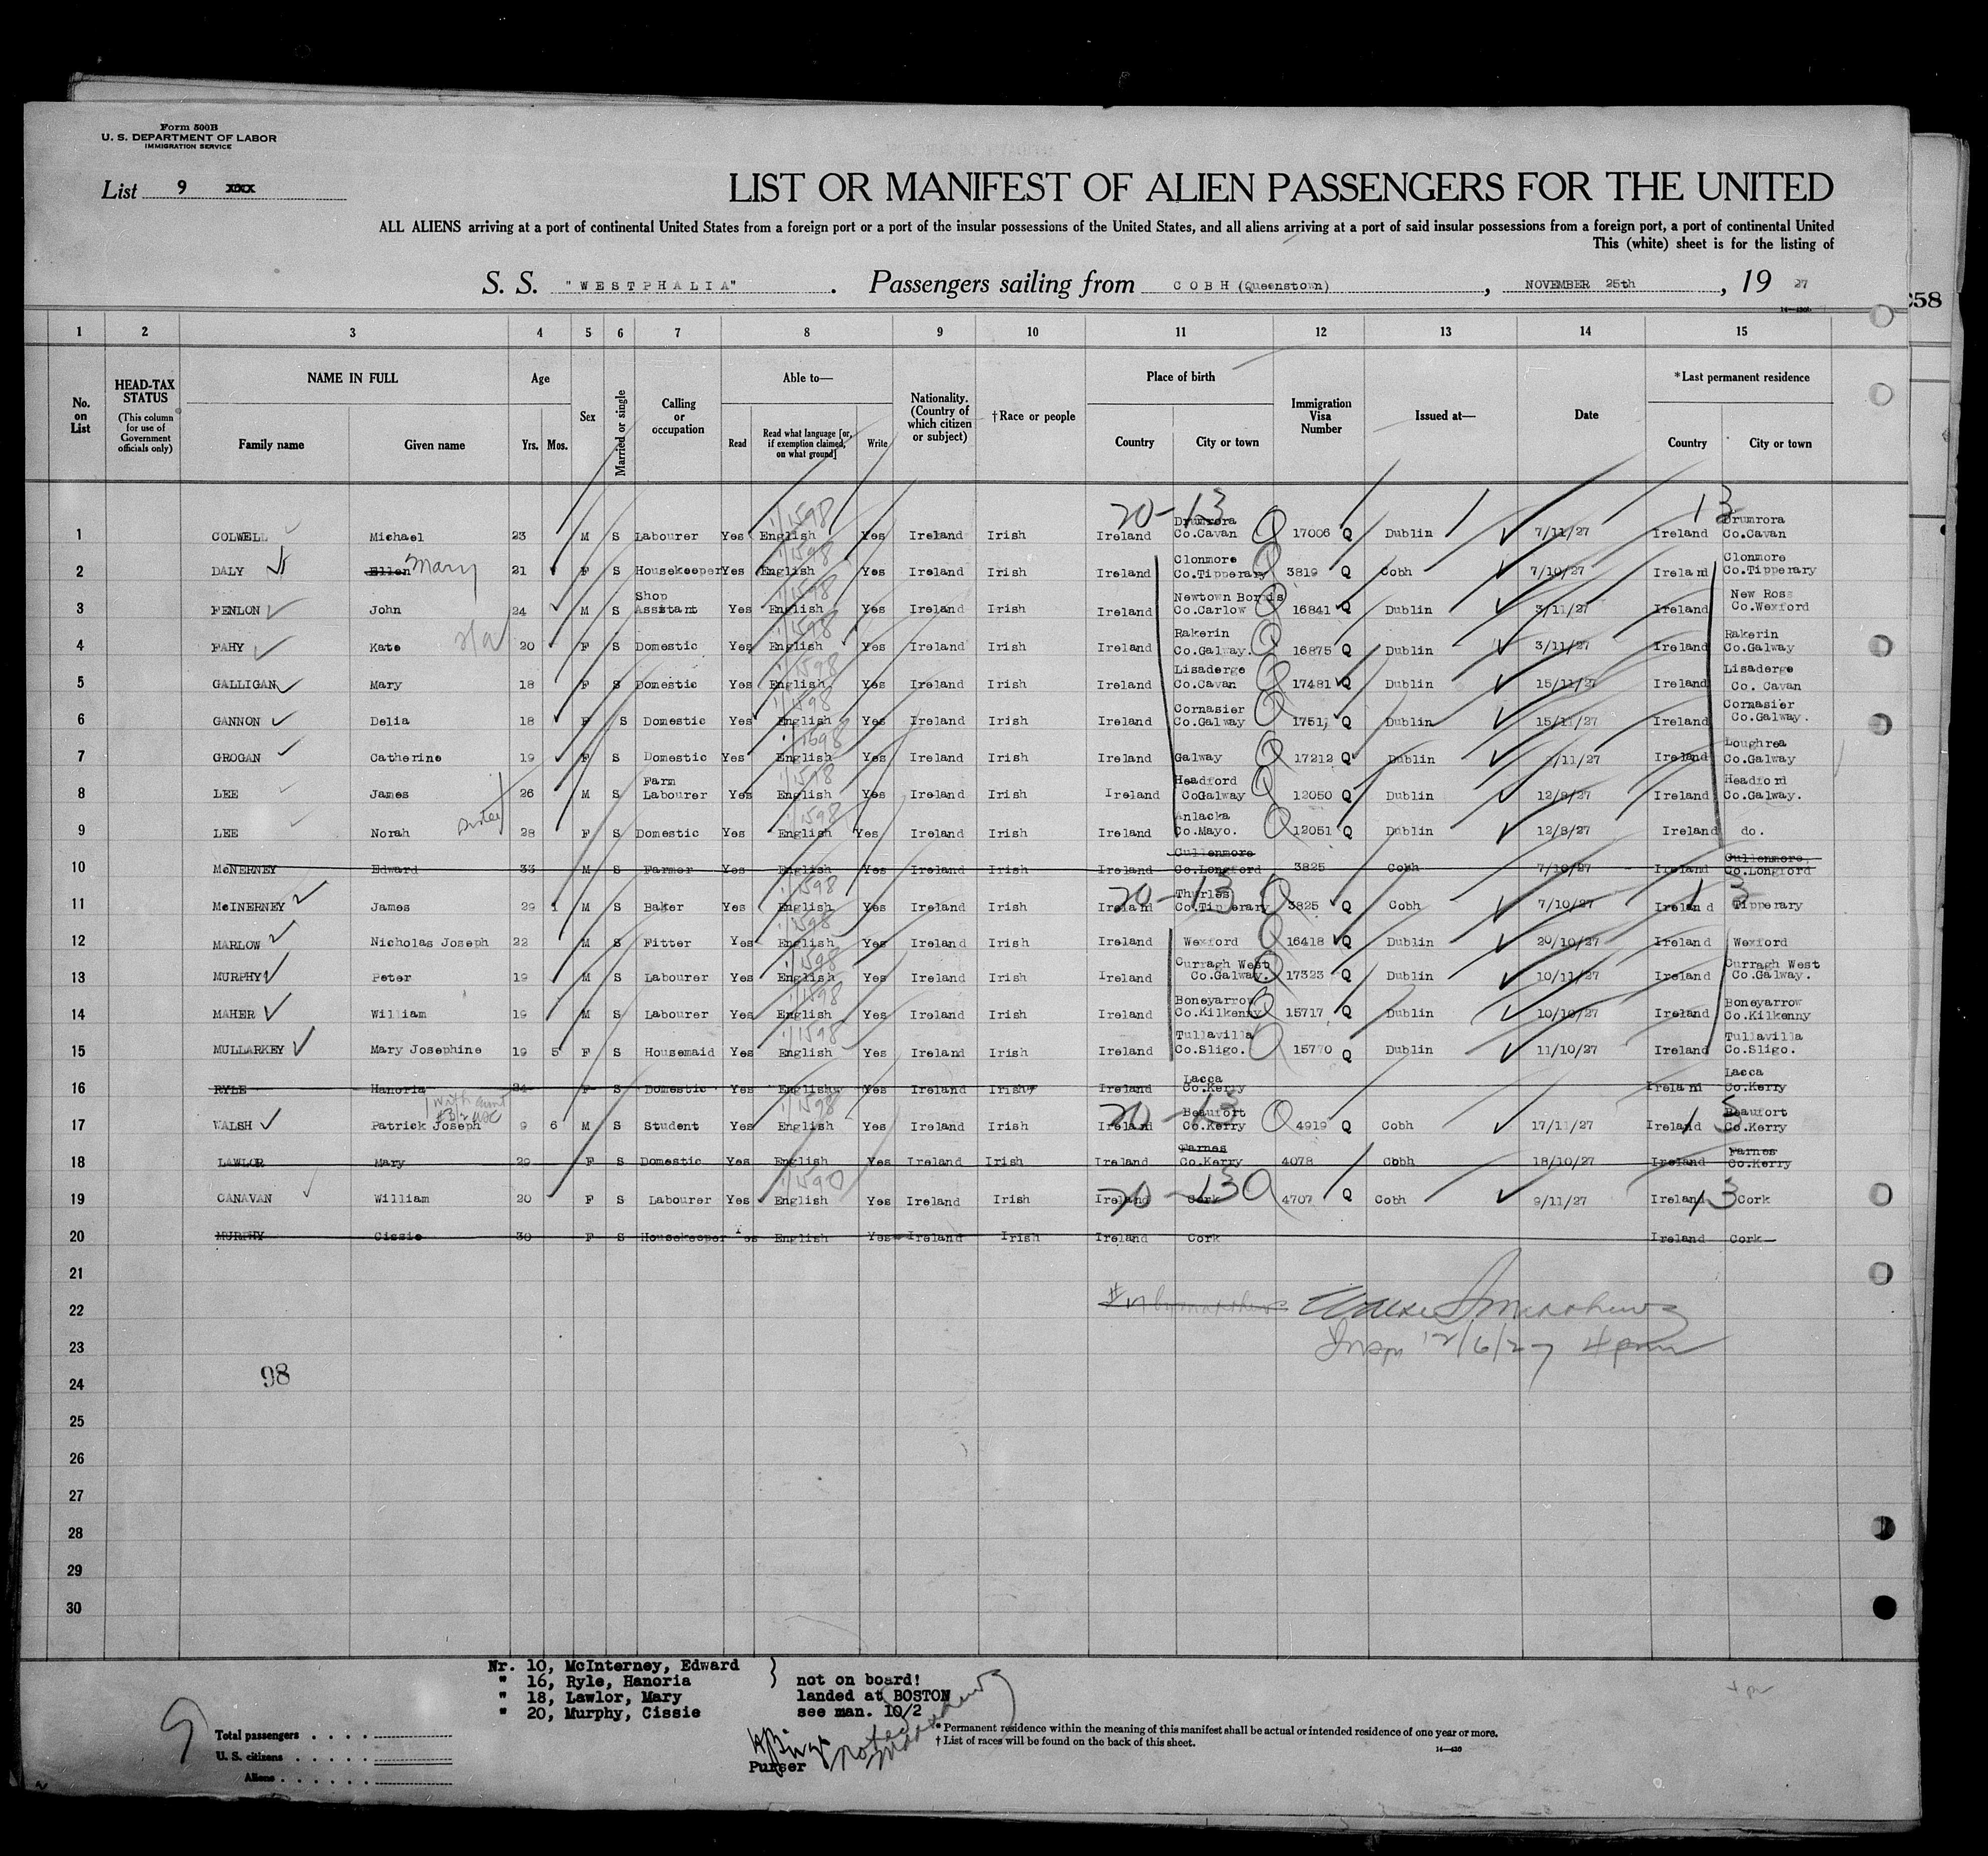 Form 500B
U. S. DEPARTMENT OF LABOR
IMMIGRATION SERVICE
List 9 xxx
LIST OR MANIFEST OF ALIEN PASSENGERS FOR THE UNITED
ALL ALIENS arriving at a port of continental United States from a foreign port or a port of the insular possessions of the United States, and all aliens arriving at a port of said insular possessions from a foreign port, a port of continental United
This (white) sheet is for the listing of
S. S. "WESTPHALIA". Passengers sailing from COBH (Queenstown), NOVEMBER 25th, 19 27
58
1 2 3 4 5 6 7 8 9 10 11 12 13 14 15
No. on List
HEAD-TAX STATUS (This column for use of Government officials only)
NAME IN FULL Family name Given name
Age Yrs. Mos.
Sex
Married or single
Calling or occupation
Able to— Read Read what language [or, if exemption claimed, on what ground] Write
Nationality. (Country of which citizen or subject)
†Race or people
Place of birth Country City or town
Immigration Visa Number
Issued at—
Date
*Last permanent residence Country City or town
20-13 13
1 COLWELL Michael 23 M S Labourer Yes English 1/1598 Yes Ireland Irish Ireland Drumrora Co.Cavan Q 17006 Q Dublin 7/11/27 Ireland Drumrora Co.Cavan
2 DALY Ellen Mary 21 F S Housekeeper Yes English 1/1598 Yes Ireland Irish Ireland Clonmore Co.Tipperary Q 3819 Q Cobh 7/10/27 Ireland Clonmore Co.Tipperary
3 FENLON John 24 M S Shop Assistant Yes English 1/1598 Yes Ireland Irish Ireland Newtown Borris Co.Carlow Q 16841 Q Dublin 3/11/27 Ireland New Ross Co.Wexford
4 FAHY Kate 20 F S Domestic Yes English 1/1598 Yes Ireland Irish Ireland Rakerin Co.Galway. Q 16875 Q Dublin 3/11/27 Ireland Rakerin Co.Galway
5 GALLIGAN Mary 18 F S Domestic Yes English 1/1598 Yes Ireland Irish Ireland Lisaderge Co.Cavan Q 17481 Q Dublin 15/11/27 Ireland Lisaderge Co. Cavan
6 GANNON Delia 18 F S Domestic Yes English 1/1598 Yes Ireland Irish Ireland Cornasier Co.Galway Q Q Dublin 15/11/27 Ireland Cornasier Co.Galway.
7 GROGAN Catherine 19 F S Domestic Yes English 1/1598 Yes Ireland Irish Ireland Galway Q 17212 Q Dublin /11/27 Ireland Loughrea Co.Galway
8 LEE James 26 M S Farm Labourer Yes English 1/1598 Yes Ireland Irish Ireland Headford CoGalway Q 12050 Q Dublin 12/8/27 Ireland Headford Co.Galway.
9 LEE Norah sister 28 F S Domestic Yes English 1/1598 Yes Ireland Irish Ireland Anlacka Co.Mayo. Q 12051 Q Dublin 12/8/27 Ireland do.
10 McNERNEY Edward 33 M S Farmer Yes English Yes Ireland Irish Ireland Cullenmore Co.Longford 3825 Cobh 7/10/27 Ireland Cullenmore, Co.Longford
20-13 13
11 McINERNEY James 29 1 M S Baker Yes English 1/1598 Yes Ireland Irish Ireland Thurles Co.Tipperary Q 3825 Q Cobh 7/10/27 Ireland Tipperary
12 MARLOW Nicholas Joseph 22 M S Fitter Yes English 1/1598 Yes Ireland Irish Ireland Wexford Q 16418 Q Dublin 20/10/27 Ireland Wexford
13 MURPHY Peter 19 M S Labourer Yes English 1/1598 Yes Ireland Irish Ireland Curragh West Co.Galway. Q 17323 Q Dublin 10/11/27 Ireland Curragh West Co.Galway.
14 MAHER William 19 M S Labourer Yes English 1/1598 Yes Ireland Irish Ireland Boneyarrow Co.Kilkenny Q 15717 Q Dublin 10/10/27 Ireland Boneyarrow Co.Kilkenny
15 MULLARKEY Mary Josephine 19 5 F S Housemaid Yes English 1/1598 Yes Ireland Irish Ireland Tullavilla Co.Sligo. Q 15770 Q Dublin 11/10/27 Ireland Tullavilla Co.Sligo.
16 RYLE Hanoria 24 F S Domestic Yes English Yes Ireland Irish Ireland Lacca Co.Kerry Ireland Lacca Co.Kerry
with aunt
20-13 13
17 WALSH Patrick Joseph 9 6 M S Student Yes English 1/1598 Yes Ireland Irish Ireland Beaufort Co.Kerry Q 4919 Q Cobh 17/11/27 Ireland Beaufort Co.Kerry
18 LAWLOR Mary 29 F S Domestic Yes English Yes Ireland Irish Ireland Farnes Co.Kerry 4078 Cobh 18/10/27 Ireland Farnes Co.Kerry
20-13 13
19 CANAVAN William 20 F S Labourer Yes English Yes Ireland Irish Ireland Cork Q 4707 Q Cobh 9/11/27 Ireland Cork
20 MURPHY Cissie 30 F S Housekeeper Yes English Yes Ireland Irish Ireland Cork Ireland Cork
21
22
23 Insp 12/6/27 4 pm
24 98
25
26
27
28
29
30
Nr. 10, McInterney, Edward
" 16, Ryle, Hanoria not on board!
" 18, Lawlor, Mary landed at BOSTON
" 20, Murphy, Cissie see man. 10/2
9
Total passengers
U. S. citizens
Aliens
Purser
* Permanent residence within the meaning of this manifest shall be actual or intended residence of one year or more.
† List of races will be found on the back of this sheet.
14—430